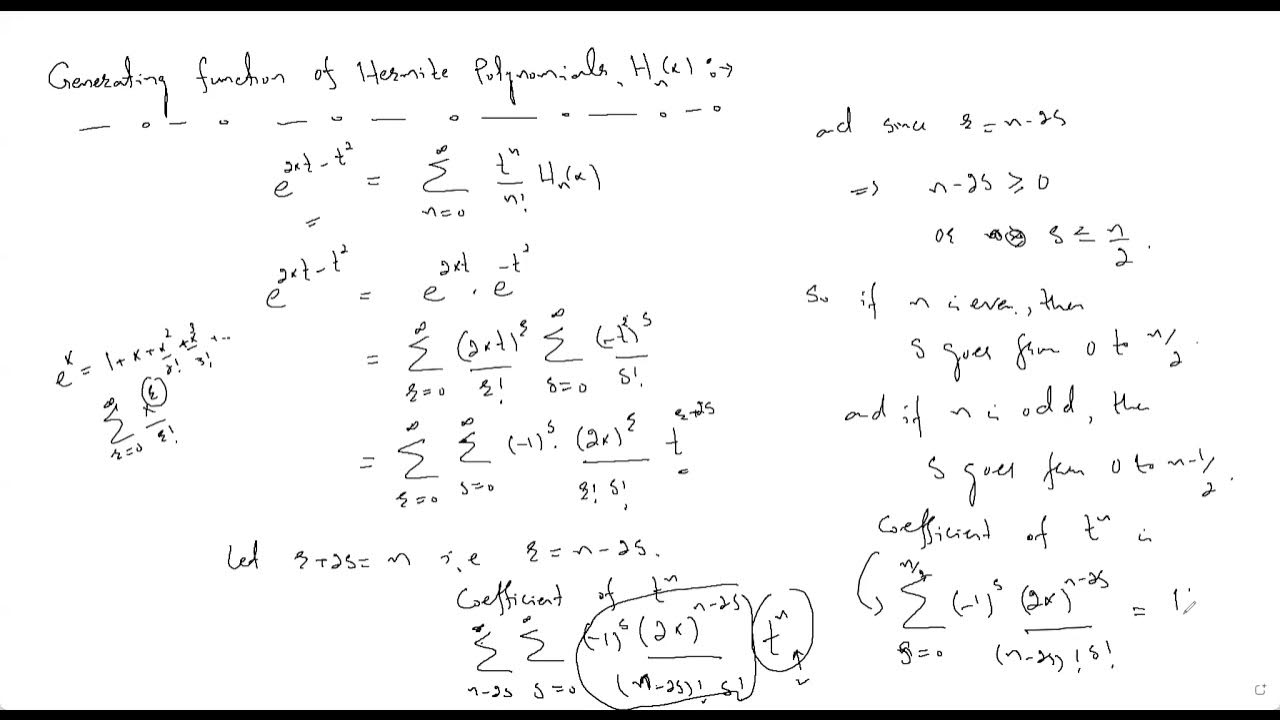 Generating function of Hermite Polynomials, Hₙ(x) :→
e^{2xt - t²} = ∑_{n=0}^{∞} tⁿ/n! Hₙ(x)
=
e^{2xt - t²} = e^{2xt} . e^{-t²}
= ∑_{r=0}^{∞} (2xt)^r/r! ∑_{s=0}^{∞} (-t²)^s/s!
e^x = 1 + x + x²/2! + x³/3! + ...
∑_{r=0}^{∞} x^r/r!
= ∑_{r=0}^{∞} ∑_{s=0}^{∞} (-1)^s . (2x)^r/(r! s!) t^{r+2s}
Let r+2s = n i.e r = n-2s.
Coefficient of tⁿ
∑_{n-2s}^{∞} ∑_{s=0}^{∞} (-1)^s (2x)^{n-2s}/((n-2s)! s!) tⁿ
and since r = n-2s
=> n-2s ≥ 0
or s ≤ n/2 .
So if n is even, then
s goes from 0 to n/2 .
and if n is odd, then
s goes from 0 to n-1/2 .
Coefficient of tⁿ is
∑_{s=0}^{n/2} (-1)^s (2x)^{n-2s}/((n-2s)! s!) =